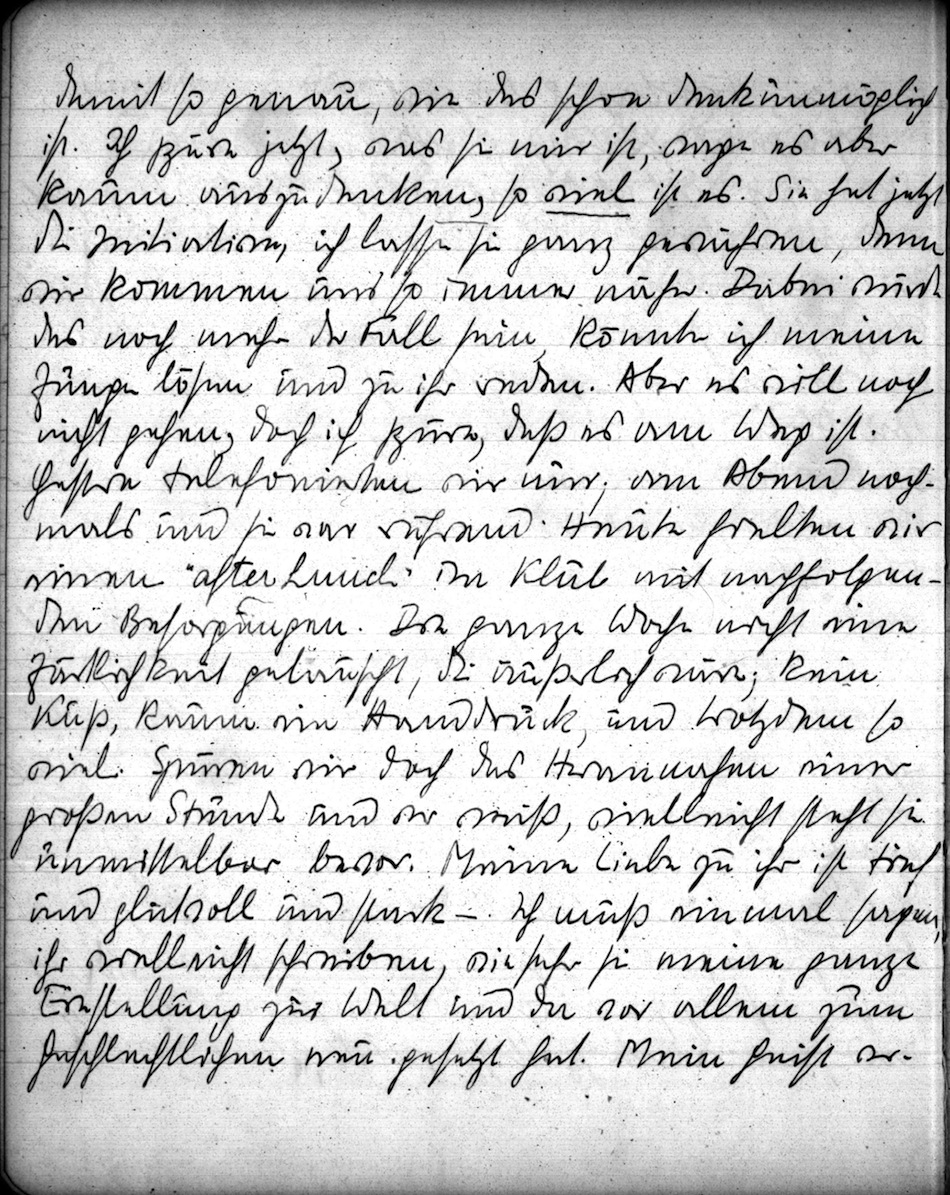 damit so genau, wie das schon denkunmöglich
ist. Ich spüre jetzt, was sie mir ist, wage es aber
kaum auszudenken, so viel ist es. Sie hat jetzt
die Initiative, ich lasse sie ganz gewähren, denn
wir kommen uns so immer näher. Dabei würde
das noch mehr der Fall sein, könnte ich meine
Zunge lösen und zu ihr reden. Aber es will noch
nicht gehen, doch ich spüre, daß es am Weg ist.
Gestern telefonierten wir nur; am Abend noch-
mals und sie war rührend. Heute hielten wir
einen "after Lunch" im Klub mit nachfolgen-
den Besorgungen. Die ganze Woche nicht eine
Zärtlichkeit getauscht, die äußerlich wäre; kein
Kuß, kaum ein Handdruck, und trotzdem so
viel. Spüren wir doch das Herannahen einer
großen Stunde und wer weiß, vielleicht steht sie
unmittelbar bevor. Meine Liebe zu ihr ist tief
und glutvoll und stark –. Ich muß einmal sagen,
ihr vielleicht schreiben, wie sehr sie meine ganze
Einstellung zur Welt und da vor allem zum
Geschlechtlichen neu gesetzt hat. Mein Geist er-